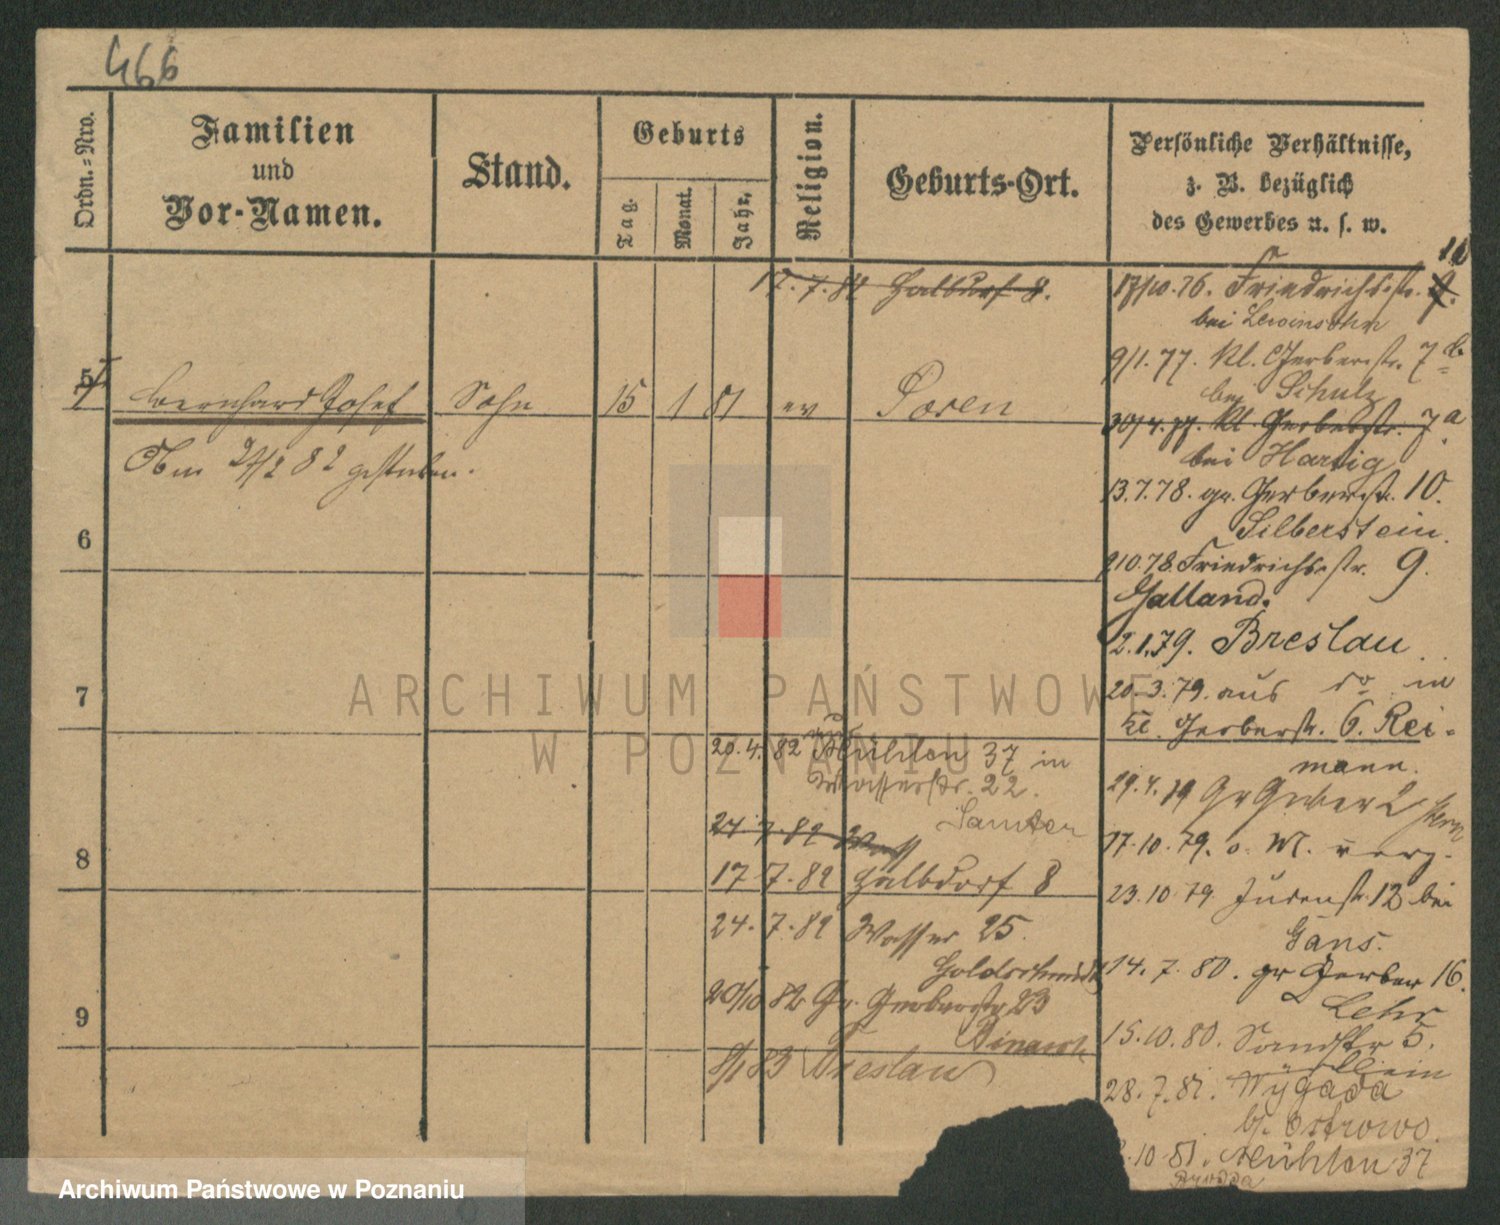 466
Ordn.=Nro.
Familien
und
Vor-Namen.
Stand.
Geburts
Tag.
Monat.
Jahr.
Religion.
Geburts-Ort.
Persönliche Verhältnisse,
z. B. bezüglich
des Gewerbes u. s. w.
17.7.82 Halbdorf 8.
10
17/10.76. Friedrichsstr. 9.
bei Lewinsohn
9/1.77. Kl. Gerberstr. 7 b
bei Schulz
30/4.77. Kl. Gerberstr. 7 a
bei Hartig
5
Bernhard Josef Sohn 15 1 81 ev Posen
Am 27/2 82 gestorben.
13.7.78. gr. Gerberstr. 10.
Silberstein.
6
9 10.78. Friedrichsstr. 9.
Galland.
2.1.79. Breslau
20.3.79. aus do in
kl. Gerberstr. 6. Rei-
mann.
7
20.4.82 Mühlen 37 in
Wasserstr. 22.
Samter
29.4.79 Gr Gerber 2 Stern
24 7.82 Wass
17.10.79. o. M. verz.
8
17 7.82 Halbdorf 8
23.10.79. Judenstr. 12 bei
Gans.
24.7.82 Wasser 25.
Goldschmidt
14.7.80. gr Gerber 16.
Lehr
20/10 82 Gr. Gerberstr 23
9
15.10.80. Sandstr 5.
8/1 83 Breslau
28.7.81. Wygoda
b. Ostrowo.
10.81. Mühlen 37
ARCHIWUM PAŃSTWOWE
W POZNANIU
Archiwum Państwowe w Poznaniu